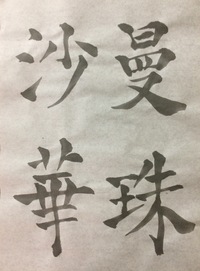 曼珠
沙華